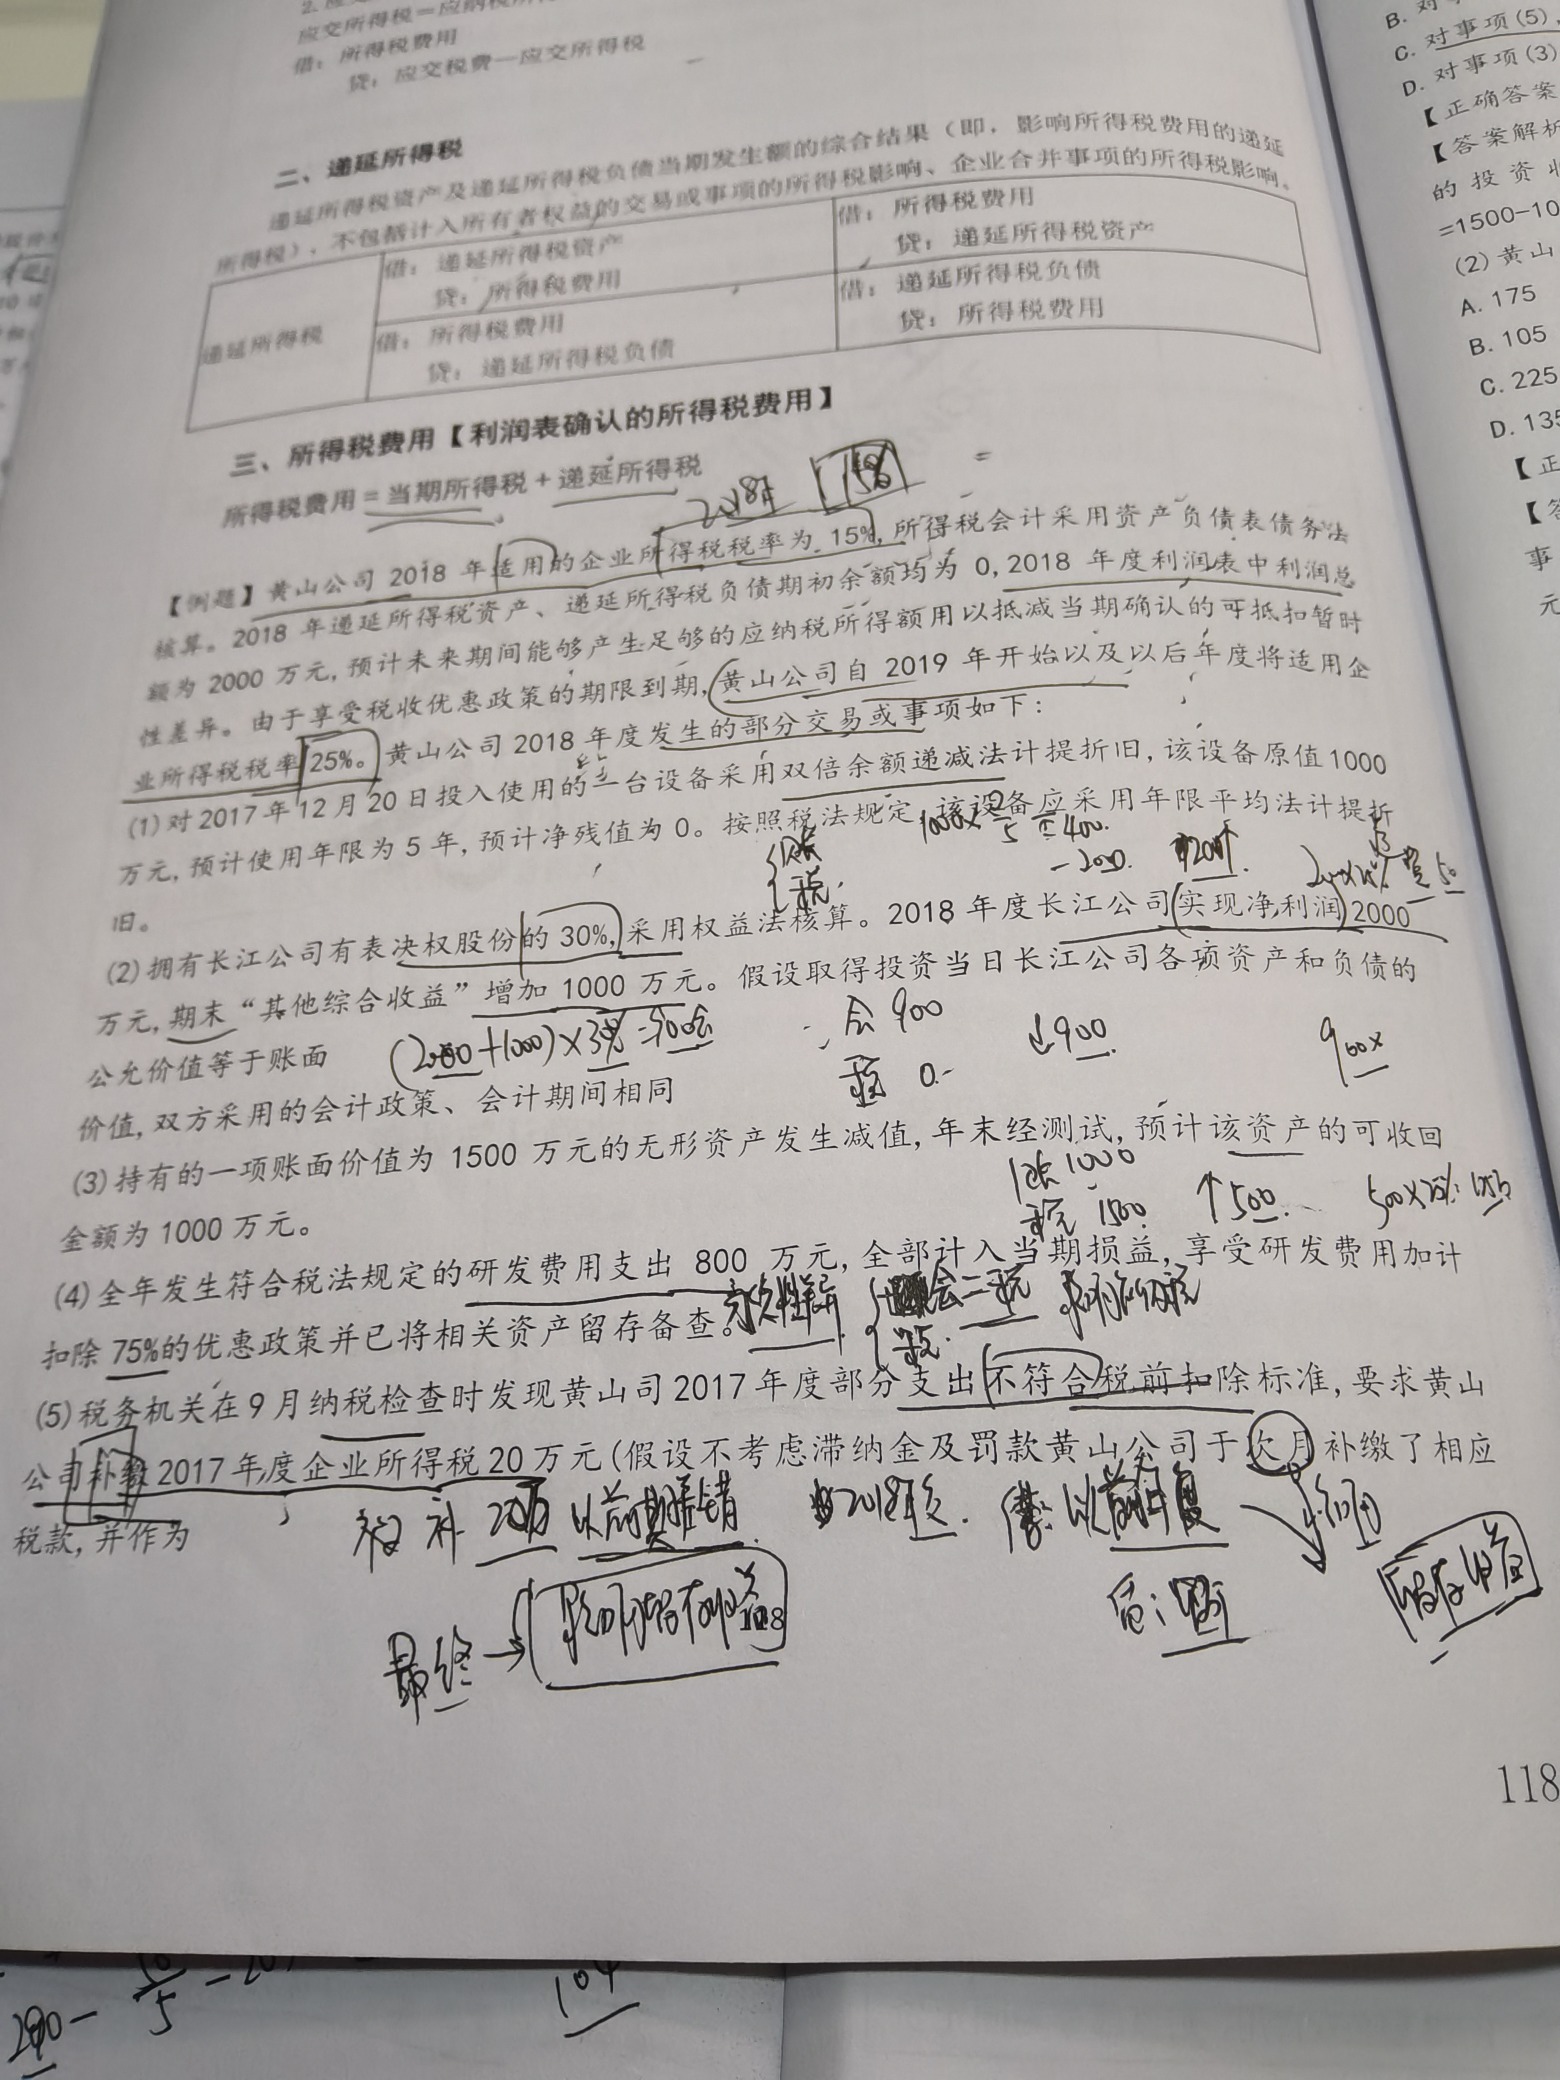 2. 应交
应交所得税=应纳税所得
借：所得税费用
贷：应交税费—应交所得税
二、递延所得税
递延所得税资产及递延所得税负债当期发生额的综合结果（即，影响所得税费用的递延
所得税），不包括计入所有者权益的交易或事项的所得税影响、企业合并事项的所得税影响。
递延所得税
借：递延所得税资产
贷：所得税费用
借：所得税费用
贷：递延所得税资产
借：所得税费用
贷：递延所得税负债
借：递延所得税负债
贷：所得税费用
三、所得税费用【利润表确认的所得税费用】
所得税费用=当期所得税+递延所得税
2018年 15%
【例题】黄山公司 2018 年适用的企业所得税税率为 15%,所得税会计采用资产负债表债务法
核算。2018 年递延所得税资产、递延所得税负债期初余额均为 0,2018 年度利润表中利润总
额为 2000 万元,预计未来期间能够产生足够的应纳税所得额用以抵减当期确认的可抵扣暂时
性差异。由于享受税收优惠政策的期限到期,黄山公司自 2019 年开始以及以后年度将适用企
业所得税税率 25%。黄山公司 2018 年度发生的部分交易或事项如下:
(1)对 2017 年 12 月 20 日投入使用的一台设备采用双倍余额递减法计提折旧,该设备原值 1000
万元,预计使用年限为 5 年,预计净残值为 0。按照税法规定,该设备应采用年限平均法计提折
旧。
账 1000×2/5=400.
税. -200. 200↑
(2)拥有长江公司有表决权股份的 30%,采用权益法核算。2018 年度长江公司实现净利润 2000
万元,期末“其他综合收益”增加 1000 万元。假设取得投资当日长江公司各项资产和负债的
公允价值等于账面
(2000+1000)×30%=900 会 900 ↓900 900×
税 0.
价值,双方采用的会计政策、会计期间相同
(3)持有的一项账面价值为 1500 万元的无形资产发生减值,年末经测试,预计该资产的可收回
金额为 1000 万元。
账 1000
税 1500. ↑500. 500×25%=125
(4)全年发生符合税法规定的研发费用支出 800 万元,全部计入当期损益,享受研发费用加计
扣除 75%的优惠政策并已将相关资产留存备查。
永久性差异
(5)税务机关在 9 月纳税检查时发现黄山司 2017 年度部分支出不符合税前扣除标准,要求黄山
公司补缴 2017 年度企业所得税 20 万元(假设不考虑滞纳金及罚款黄山公司于次月补缴了相应
税款,并作为
补 20万 以前期差错 2018年 借: 以前年度
最终→影响留存收益 留存收益
118
118
B. 对
C. 对事项(5),
D. 对事项(3)
【正确答案
【答案解析
的投资收
=1500-10
(2)黄山
A. 175
B. 105
C. 225
D. 135
【正
【答
事
元
200-
5
104